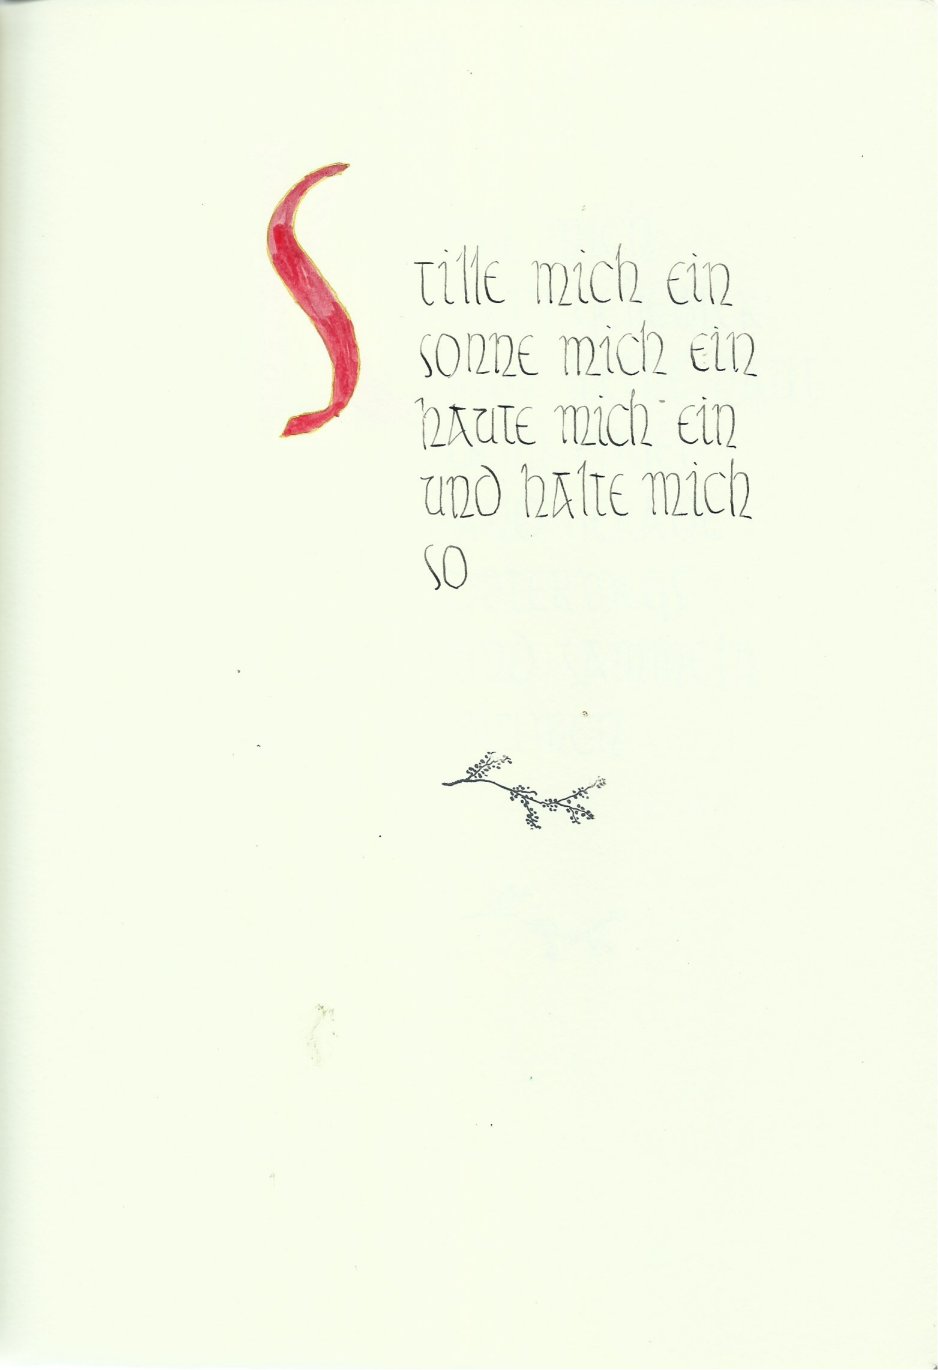 Stille mich ein
sonne mich ein
haute mich ein
und halte mich
so